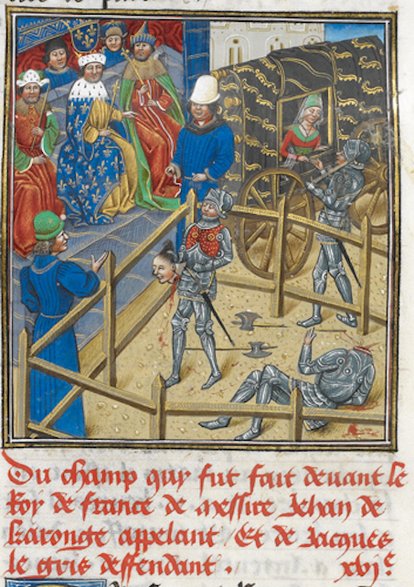 Du champ quy fut fait deuant le
Roy de france de messire Jehan de
karongte appelant Et de Jacques
le gris deffendant . xvi